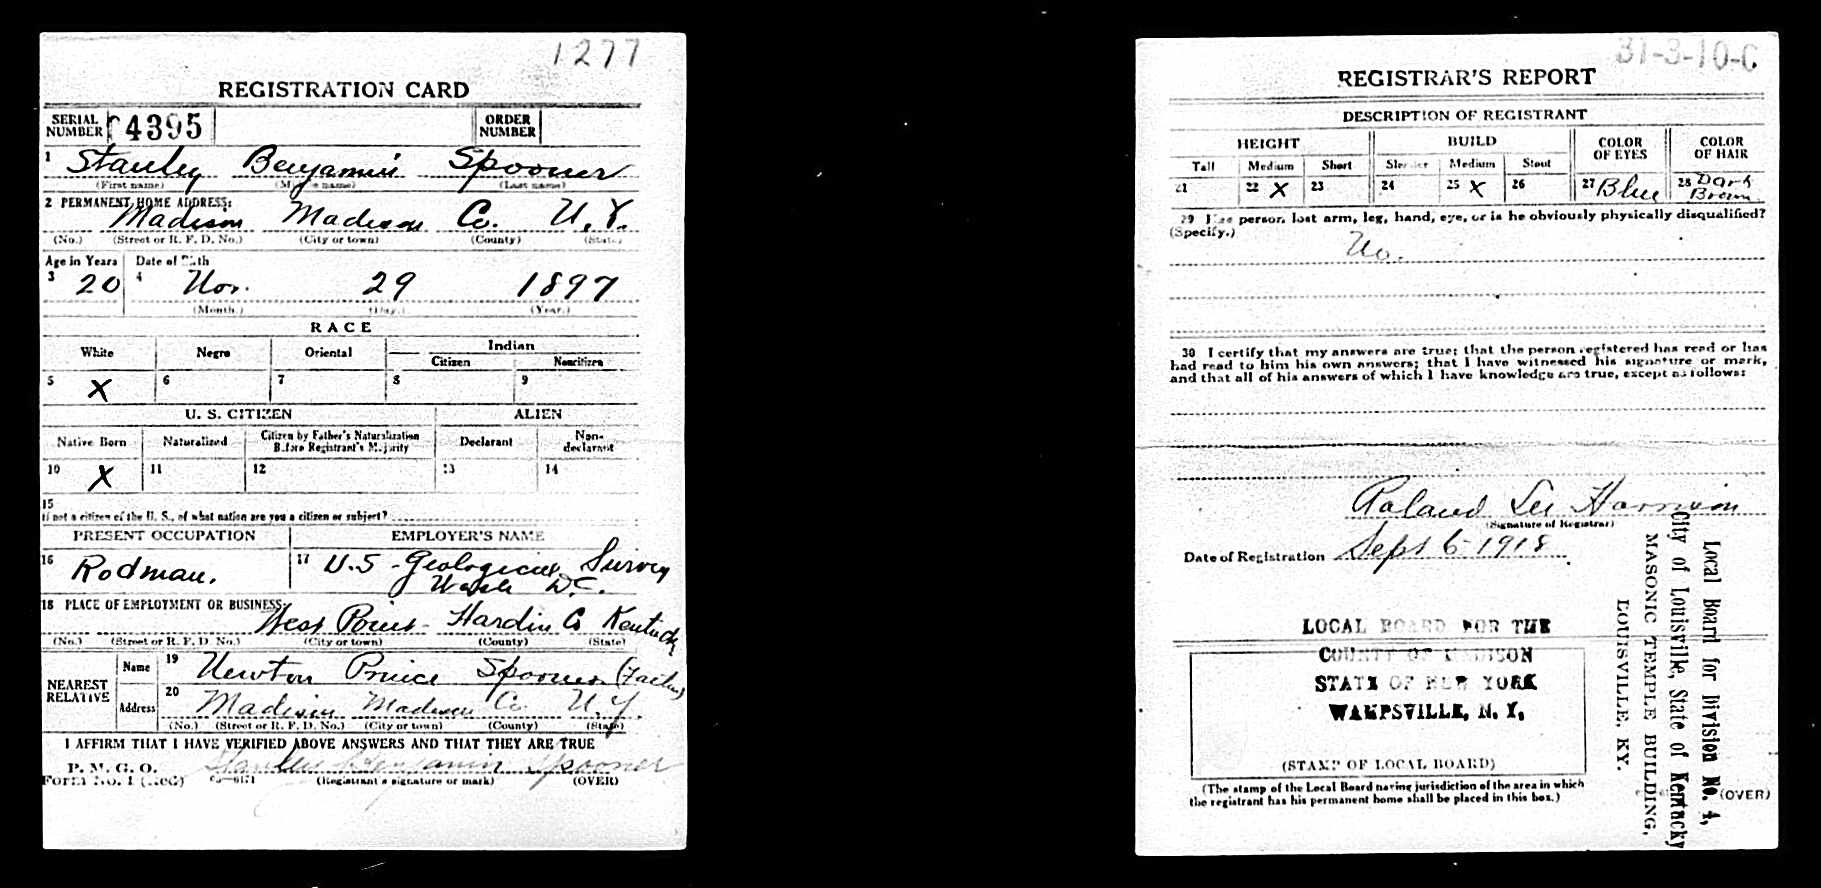 1277
REGISTRATION CARD
SERIAL NUMBER 4395 ORDER NUMBER
1 Stanley Benjamin Spooner
(First name) (Middle name) (Last name)
2 PERMANENT HOME ADDRESS:
Madison Madison Co. N.Y.
(No.) (Street or R. F. D. No.) (City or town) (County) (State)
Age in Years Date of Birth
3 20 4 Nov. 29 1897
(Month.) (Day.) (Year.)
RACE
White Negro Oriental Indian
Citizen Noncitizen
5 X 6 7 8 9
U. S. CITIZEN ALIEN
Native Born Naturalized Citizen by Father's Naturalization Before Registrant's Majority Declarant Non-declarant
10 X 11 12 13 14
15
If not a citizen of the U. S., of what nation are you a citizen or subject?
PRESENT OCCUPATION EMPLOYER'S NAME
16 Rodman. 17 U.S - Geological Survey
Wash D.C.
18 PLACE OF EMPLOYMENT OR BUSINESS:
West Point - Hardin Co Kentucky
(No.) (Street or R. F. D. No.) (City or town) (County) (State)
NEAREST RELATIVE Name 19 Newton Prince Spooner (Father)
Address 20 Madison Madison Co N.Y.
(No.) (Street or R. F. D. No.) (City or town) (County) (State)
I AFFIRM THAT I HAVE VERIFIED ABOVE ANSWERS AND THAT THEY ARE TRUE
P. M. G. O.
Form No. 1 (Red) Stanley Benjamin Spooner
(Registrant's signature or mark) (OVER)
31-3-10-C
REGISTRAR'S REPORT
DESCRIPTION OF REGISTRANT
HEIGHT BUILD COLOR OF EYES COLOR OF HAIR
Tall Medium Short Slender Medium Stout
21 22 X 23 24 25 X 26 27 Blue 28 Dark Brown
29 Has person lost arm, leg, hand, eye, or is he obviously physically disqualified?
(Specify.)
No.
30 I certify that my answers are true; that the person registered has read or has
had read to him his own answers; that I have witnessed his signature or mark,
and that all of his answers of which I have knowledge are true, except as follows:
Roland Lee Harrison
(Signature of Registrar)
Date of Registration Sept 6-1918
LOCAL BOARD FOR THE
COUNTY OF MADISON
STATE OF NEW YORK
WAMPSVILLE, N. Y.
(STAMP OF LOCAL BOARD)
(The stamp of the Local Board having jurisdiction of the area in which
the registrant has his permanent home shall be placed in this box.)
(OVER)
Local Board for Division No. 4,
City of Louisville, State of Kentucky
MASONIC TEMPLE BUILDING,
LOUISVILLE, KY.